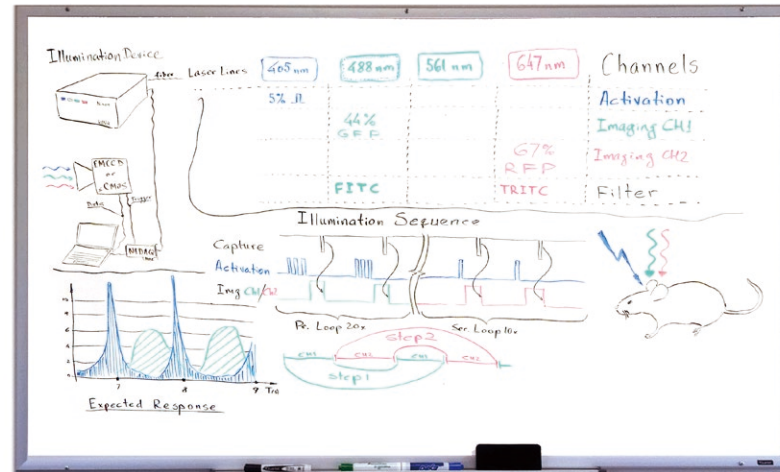 Illumination Device
fiber
Laser Lines 405 nm 488 nm 561 nm 647 nm Channels
5% Activation
44% GFP Imaging CH1
67% RFP Imaging CH2
FITC TRITC Filter
EMCCD or CMOS
Data Trigger
NI DAQ
Illumination Sequence
Capture
Activation
Img CH1/CH2
Pe. Loop 20x Ser. Loop 10x
step2
CH1 CH2 CH1 CH2
step1
8
6
4
2
0
7 8 9
Expected Response